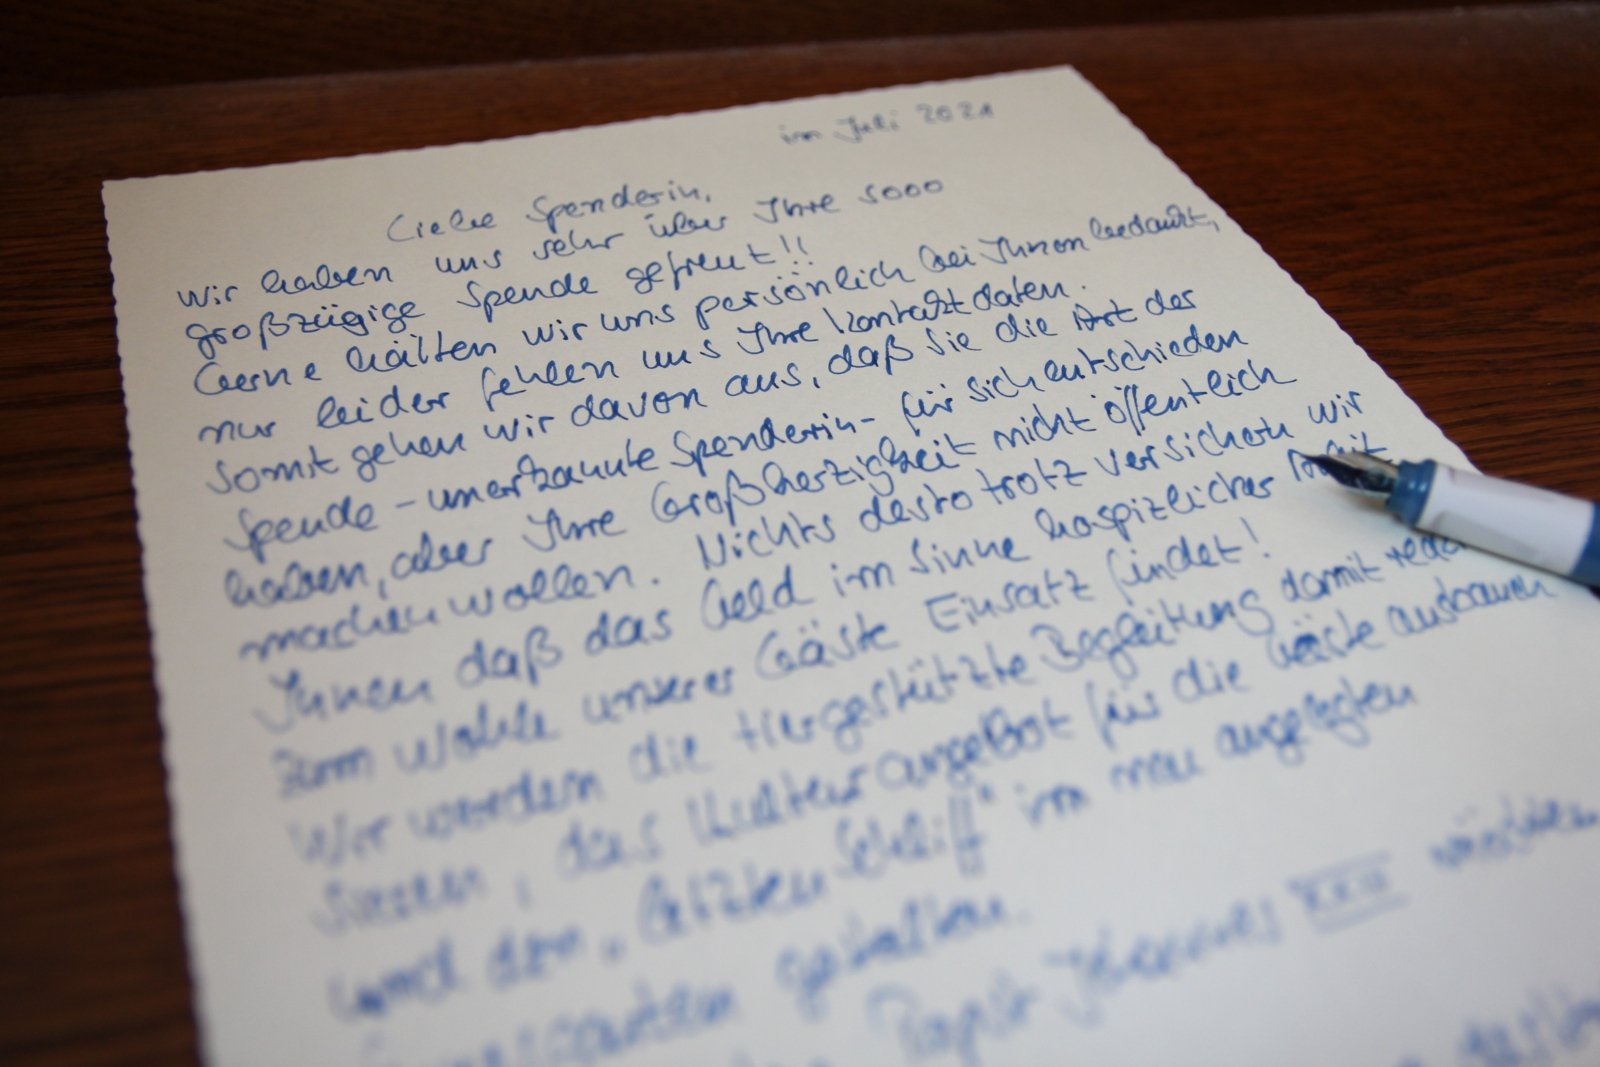 im Juli 2021
Liebe Spenderin,
wir haben uns sehr über Ihre sooo
großzügige Spende gefreut!!
Gerne hätten wir uns persönlich bei Ihnen bedankt,
nur leider fehlen uns Ihre Kontaktdaten.
Somit gehen wir davon aus, daß sie die Art der
Spende - unerkannte Spenderin - für sich entschieden
haben, aber Ihre Großherzigkeit nicht öffentlich
machen wollen. Nichts desto trotz versichern wir
Ihnen daß das Geld im Sinne hospizlicher Arbeit
zum Wohle unserer Gäste Einsatz findet!
Wir werden die tiergestützte Begleitung damit
das Kulturangebot für die Gäste ausbauen
und den "letzten Schliff" im neu angelegten
gestalten.
Papst Johannes XXIII